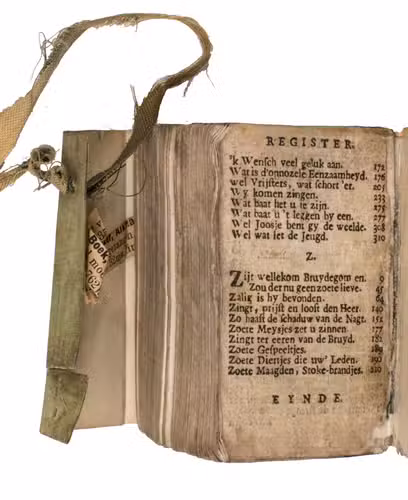 REGISTER.
'k Wensch veel geluk aan. 172
Wat is d'onnozele Eenzaamheyd. 176
wel Vrijsters, wat schort 'er. 205
Wy komen zingen. 233
Wat baat het u te zijn. 175
Wat baat u 't leggen by een. 277
Wel Joosje bent gy de weelde. 308
Wel wat let de Jeugd. 310
Z.
Zijt wellekom Bruydegom en. 9
Zou der nu geen zoete lieve. 45
Zalig is hy bevonden. 64
Zingt, prijst en looft den Heer. 140
Zo haast de schaduw van de Nagt. 151
Zoete Meysjes zet u zinnen. 177
Zingt ter eeren van de Bruyd. 182
Zoete Gespeeltjes. 189
Zoete Diertjes die uw' Leden. 192
Zoete Maagden, Stoke-brandjes. 220
EYNDE.
Boek,